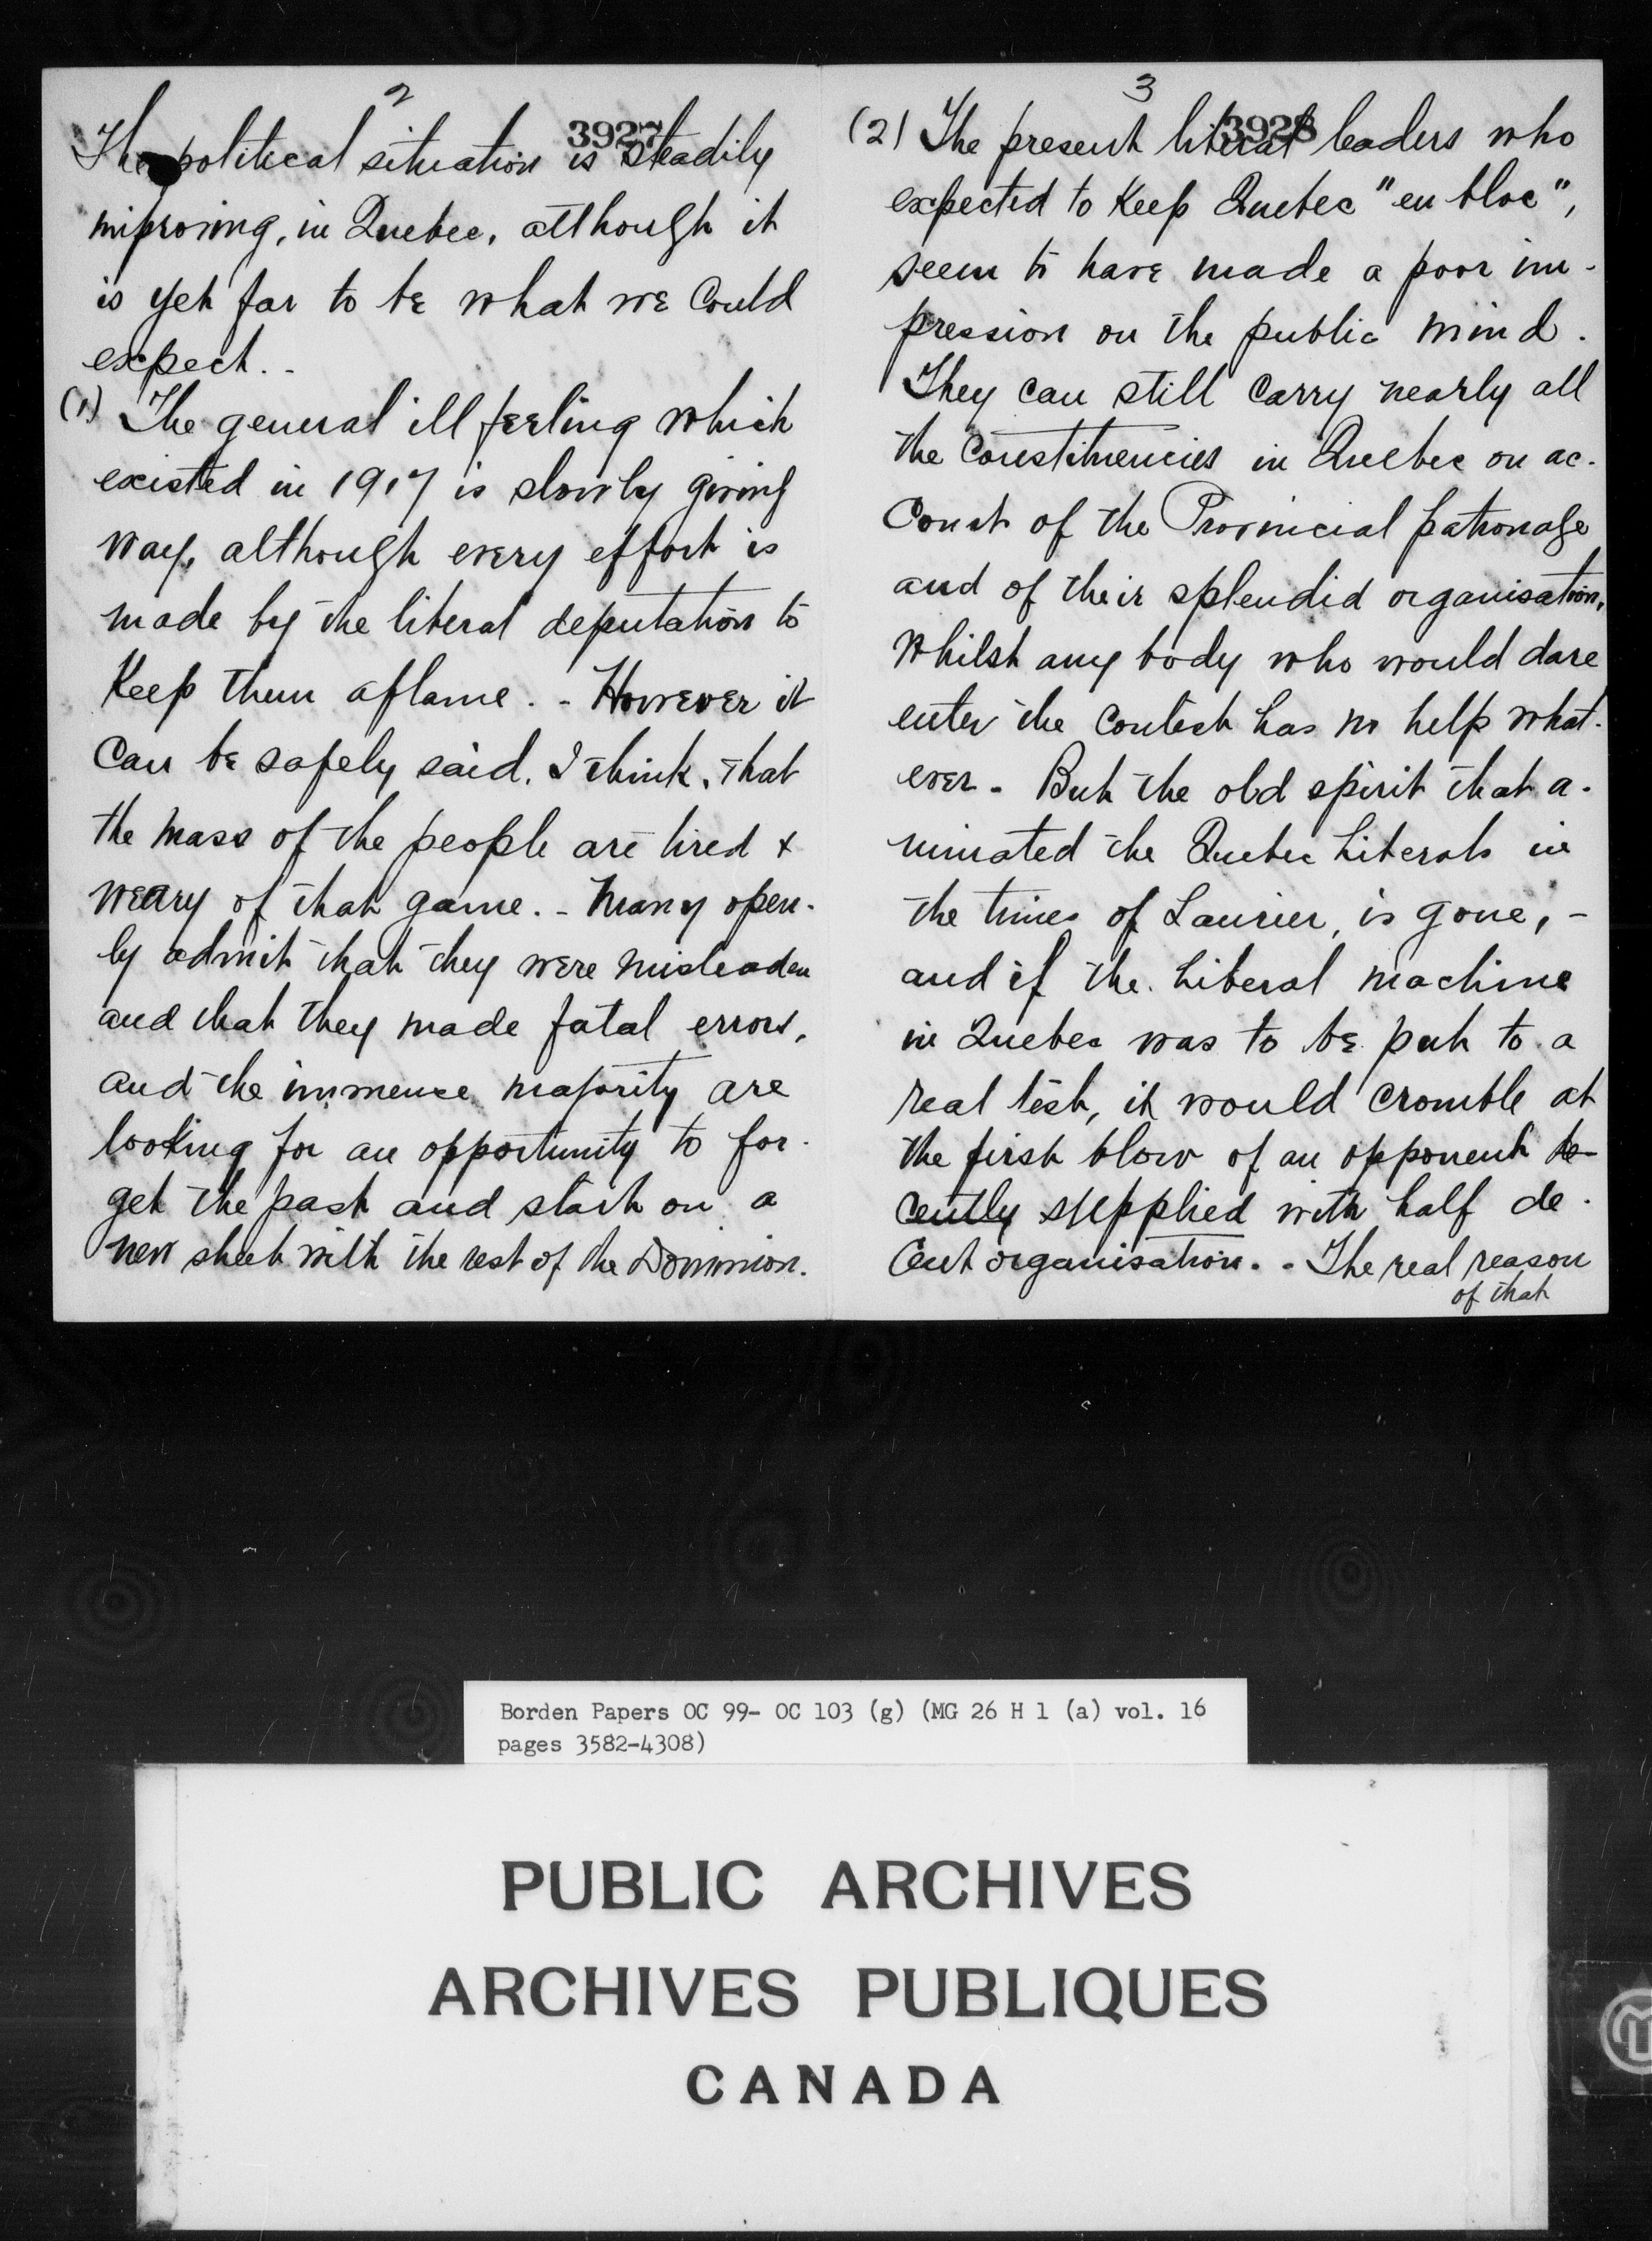 2
3927
The political situation is steadily
improving, in Quebec, although it
is yet far to be what we could
expect. -
(1) The general ill feeling which
existed in 1917 is slowly giving
way, although every effort is
made by the liberal deputation to
Keep them aflame. - However it
can be safely said, I think, that
the mass of the people are tired &
weary of that game. - Many open-
ly admit that they were misleaden
and that they made fatal errors,
and the immense majority are
looking for an opportunity to for-
get the past and start on a
new sheet with the rest of the Dominion.
3
3928
(2) The present liberal leaders who
expected to Keep Quebec "en bloc",
seem to have made a poor im-
pression on the public mind.
They can still carry nearly all
the constituencies in Quebec on ac-
count of the Provincial patronage
and of their splendid organisation,
whilst any body who would dare
enter the contest has no help what-
ever - But the old spirit that a-
nimated the Quebec Liberals in
the times of Laurier, is gone, -
and if the Liberal machine
in Quebec was to be put to a
real test, it would cromble at
the first blow of an opponent de-
cently supplied with half de-
cent organisation. - The real reason
of that
Borden Papers OC 99- OC 103 (g) (MG 26 H 1 (a) vol. 16
pages 3582-4308)
PUBLIC ARCHIVES
ARCHIVES PUBLIQUES
CANADA